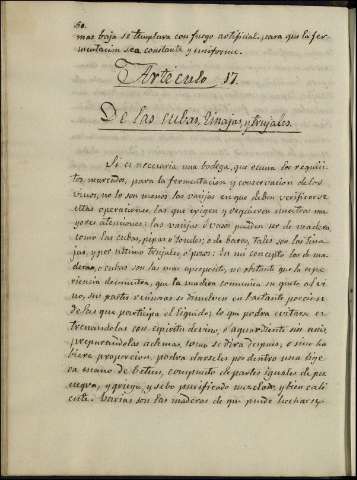 60.
mas baja se templara con fuego artificial, para que la fer-
mentacion sea constante y uniforme.
Articulo 17.
De las cubas, tinajas, y trujales.
Si es necesaria una bodega, que reuna los requisi-
tos marcados, para la fermentacion y conservacion de los
vinos, no lo son menos las vasijas en que deben verificarse
estas operaciones, las que exigen y requieren nuestras ma-
yores atenciones: las vasijas de vaso pueden ser de madera
como las cubas, pipas o toneles; o de barro, tales son las tina-
jas, y por ultimo trujales, o pozos: En mi concepto las de ma-
dera, o cubas son las mas aproposito, no obstante que la espe-
riencia demuestra, que la madera comunica su gusto al vi-
no, sus partes resinosas se disuelven en bastante porcion
de las que participa el liquido; lo que podra evitarse es-
trenandolas con espiritu de vino, o aguardiente sin anis
preparandolas ademas, como se dira despues, o si no hu-
biera proporcion, podra darseles por dentro una lije-
ra mano de betun, compuesto de partes iguales de pez
negra, y griega, y sebo purificado mezclado, y bien cali-
ente. Varias son las maderas de que puede hecharse